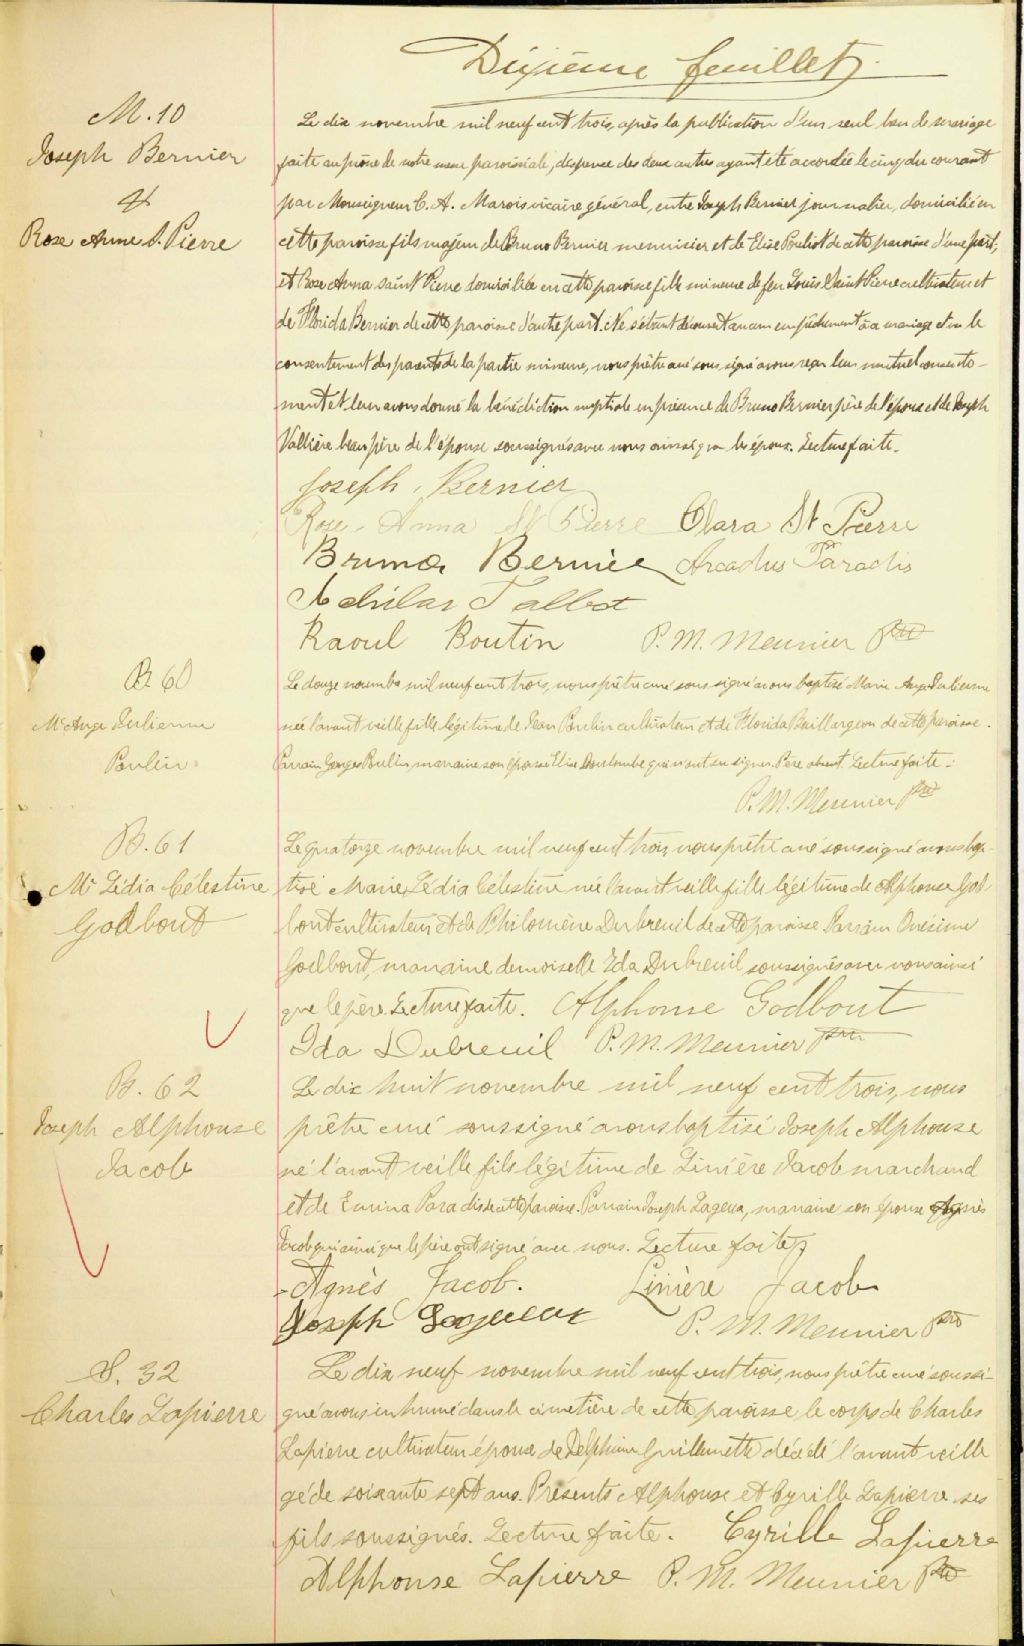 Dixième feuillet
M. 10
Joseph Bernier
&
Rose Anna S. Pierre
Le dix novembre mil neuf cent trois, après la publication d'un seul ban de mariage
faite au prône de notre messe paroissiale, dispense des deux autres ayant été accordée le cinq du courant
par Monseigneur C. A. Marois vicaire général, entre Joseph Bernier journalier, domicilié en
cette paroisse fils majeur de Bruno Bernier menuisier et de Elise Pouliot de cette paroisse d'une part;
et Rose Anna Saint Pierre domiciliée en cette paroisse fille mineure de feu Louis Saint Pierre cultivateur et
de Florida Bernier de cette paroisse d'autre part. Ne s'étant découvert aucun empêchement à ce mariage et vu le
consentement des parents de la partie mineure, nous prêtre curé sous signé avons reçu leur mutuel consente-
ment et leur avons donné la bénédiction nuptiale en présence de Bruno Bernier père de l'époux et de Joseph
Vallière beau père de l'épouse soussignés avec nous ainsi que les époux. Lecture faite.
Joseph Bernier
Rose-Anna St Pierre Clara St Pierre
Bruno Bernier Arcadius Paradis
Achilas Talbot
Raoul Boutin P. M. Meunier Ptre
B. 60
Me Ange Julienne
Poulin
Le douze novembre mil neuf cent trois, nous prêtre curé sous signé avons baptisé Marie Ange Julienne
née l'avant veille fille légitime de Jean Poulin cultivateur et de Florida Baillargeon de cette paroisse.
Parrain Georges Poulin, marraine son épouse Elise qui n'ont su signer. Père absent. Lecture faite.
P. M. Meunier Ptre
B. 61
Me Lédia Célestine
Godbout
Le quatorze novembre mil neuf cent trois, nous prêtre curé soussigné avons bap-
tisé Marie Lédia Célestine née l'avant veille fille légitime de Alphonse God-
bout cultivateur et de Philomène Dubreuil de cette paroisse. Parrain Onésime
Godbout, marraine demoiselle Ida Dubreuil soussignés avec nous ainsi
que le père. Lecture faite. Alphonse Godbout
Ida Dubreuil P. M. Meunier Ptre
B. 62
Joseph Alphonse
Jacob
Le dix huit novembre mil neuf cent trois, nous
prêtre curé soussigné avons baptisé Joseph Alphonse
né l'avant veille fils légitime de Linière Jacob marchand
et de Exurina Paradis de cette paroisse. Parrain Joseph Lageux, marraine son épouse Agnès
Jacob qui ainsi que le père ont signé avec nous. Lecture faite
Agnès Jacob. Linière Jacob
Joseph Lagueux P. M. Meunier Ptre
S. 32
Charles Lapierre
Le dix neuf novembre mil neuf cent trois, nous prêtre curé soussi-
gné avons inhumé dans le cimetière de cette paroisse le corps de Charles
Lapierre cultivateur époux de Delphine Guillemette décédé l'avant veille
gé de soixante sept ans. Présents Alphonse et Cyrille Lapierre ses
fils soussignés. Lecture faite. Cyrille Lapierre
Alphonse Lapierre P. M. Meunier Ptre